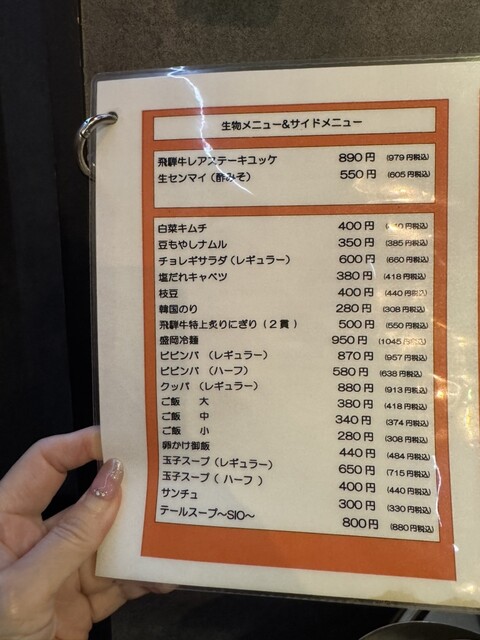 生物メニュー&サイドメニュー
飛騨牛レアステーキユッケ 890円 (979円税込)
生センマイ(酢みそ) 550円 (605円税込)
白菜キムチ 400円 (440円税込)
豆もやしナムル 350円 (385円税込)
チョレギサラダ(レギュラー) 600円 (660円税込)
塩だれキャベツ 380円 (418円税込)
枝豆 400円 (440円税込)
韓国のり 280円 (308円税込)
飛騨牛特上炙りにぎり(2貫) 500円 (550円税込)
盛岡冷麺 950円 (1045円税込)
ビビンバ (レギュラー) 870円 (957円税込)
ビビンバ (ハーフ) 580円 (638円税込)
クッパ (レギュラー) 880円 (913円税込)
ご飯 大 380円 (418円税込)
ご飯 中 340円 (374円税込)
ご飯 小 280円 (308円税込)
卵かけ御飯 440円 (484円税込)
玉子スープ(レギュラー) 650円 (715円税込)
玉子スープ(ハーフ) 400円 (440円税込)
サンチュ 300円 (330円税込)
テールスープ~SIO~ 800円 (880円税込)